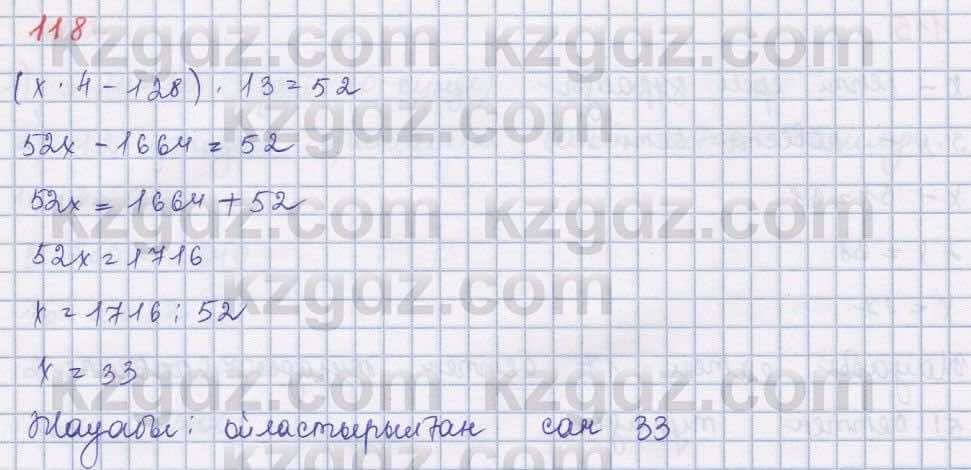 118
(x · 4 - 128) · 13 = 52
52x - 1664 = 52
52x = 1664 + 52
52x = 1716
x = 1716 : 52
x = 33
Жауабы: ойластырылған сан 33
kzgdz.com kzgdz.com
kzgdz.com
kzgdz.com kzgdz.com
kzgdz.com
kzgdz.com kzgdz.com